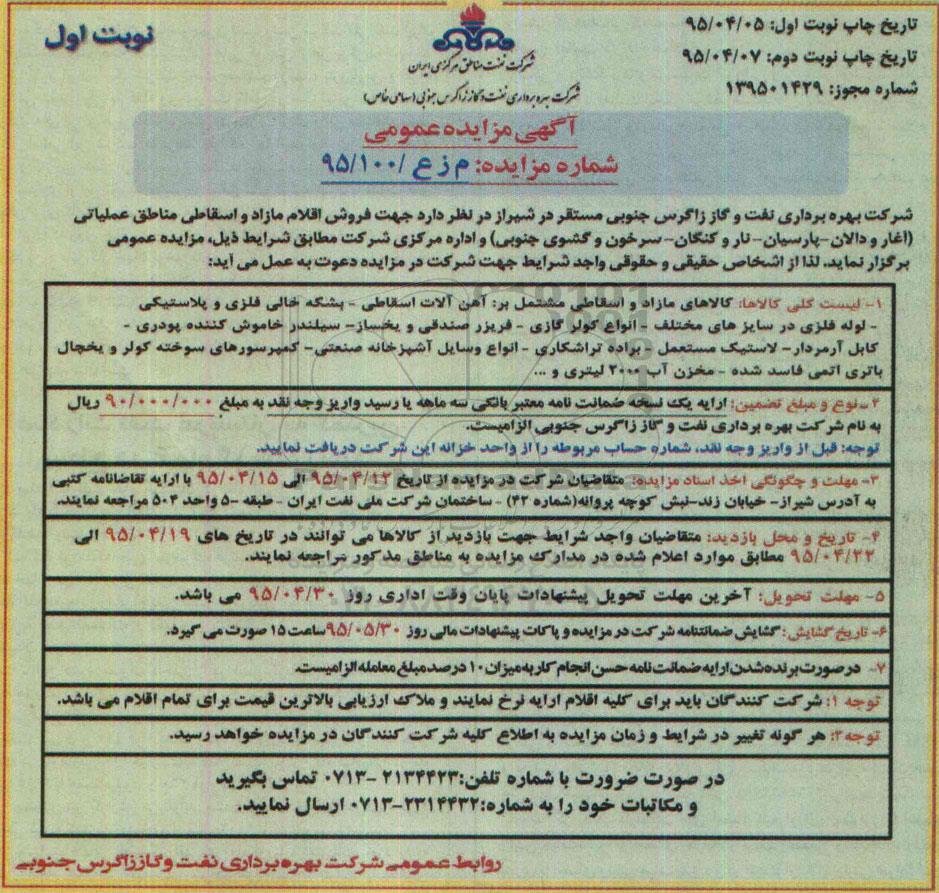 تاریخ چاپ نوبت اول: ۹۵/۰۴/۰۵
تاریخ چاپ نوبت دوم: ۹۵/۰۴/۰۷
شماره مجوز: ۱۳۹۵۰۱۴۲۹
نوبت اول
شرکت نفت مناطق مرکزی ایران
شرکت بهره برداری نفت و گاز زاگرس جنوبی (سهامی خاص)
آگهی مزایده عمومی
شماره مزایده: م ز ع /۹۵/۱۰۰
شرکت بهره برداری نفت و گاز زاگرس جنوبی مستقر در شیراز در نظر دارد جهت فروش اقلام مازاد و اسقاطی مناطق عملیاتی
(آغار و دالان-پارسیان-نار و کنگان-سرخون و گشوی جنوبی) و اداره مرکزی شرکت مطابق شرایط ذیل، مزایده عمومی
برگزار نماید. لذا از اشخاص حقیقی و حقوقی واجد شرایط جهت شرکت در مزایده دعوت به عمل می آید:
۱- لیست کلی کالاها: کالاهای مازاد و اسقاطی مشتمل بر: آهن آلات اسقاطی - بشکه خالی فلزی و پلاستیکی
- لوله فلزی در سایز های مختلف - انواع کولر گازی - فریزر صندقی و یخساز- سیلندر خاموش کننده پودری -
کابل آرمردار- لاستیک مستعمل - براده تراشکاری - انواع وسایل آشپزخانه صنعتی- کمپرسورهای سوخته کولر و یخچال
باتری اتمی فاسد شده - مخزن آب ۲۰۰۰ لیتری و ...
۲- نوع و مبلغ تضمین: ارایه یک نسخه ضمانت نامه معتبر بانکی سه ماهه یا رسید واریز وجه نقد به مبلغ ۹۰/۰۰۰/۰۰۰ ریال
به نام شرکت بهره برداری نفت و گاز زاگرس جنوبی الزامیست.
توجه: قبل از واریز وجه نقد، شماره حساب مربوطه را از واحد خزانه این شرکت دریافت نمایید.
۳- مهلت و چگونگی اخذ اسناد مزایده: متقاضیان شرکت در مزایده از تاریخ ۹۵/۰۴/۱۲ الی ۹۵/۰۴/۱۵ با ارایه تقاضانامه کتبی
به آدرس شیراز- خیابان زند-نبش کوچه پروانه(شماره ۴۲) - ساختمان شرکت ملی نفت ایران - طبقه ۵- واحد ۵۰۴ مراجعه نمایند.
۴- تاریخ و محل بازدید: متقاضیان واجد شرایط جهت بازدید از کالاها می توانند در تاریخ های ۹۵/۰۴/۱۹ الی
۹۵/۰۴/۲۲ مطابق موارد اعلام شده در مدارک مزایده به مناطق مذکور مراجعه نمایند.
۵- مهلت تحویل: آخرین مهلت تحویل پیشنهادات پایان وقت اداری روز ۹۵/۰۴/۳۰ می باشد.
۶- تاریخ گشایش: گشایش ضمانتنامه شرکت در مزایده و پاکات پیشنهادات مالی روز ۹۵/۰۵/۳۰ ساعت ۱۵ صورت می گیرد.
۷- در صورت برنده شدن ارایه ضمانت نامه حسن انجام کار به میزان ۱۰ درصد مبلغ معامله الزامیست.
توجه ۱: شرکت کنندگان باید برای کلیه اقلام ارایه نرخ نمایند و ملاک ارزیابی بالاترین قیمت برای تمام اقلام می باشد.
توجه۲: هر گونه تغییر در شرایط و زمان مزایده به اطلاع کلیه شرکت کنندگان در مزایده خواهد رسید.
در صورت ضرورت با شماره تلفن:۲۱۳۴۴۲۳ -۰۷۱۳ تماس بگیرید
و مکاتبات خود را به شماره:۲۳۱۴۴۳۲-۰۷۱۳ ارسال نمایید.
روابط عمومی شرکت بهره برداری نفت و گاز زاگرس جنوبی